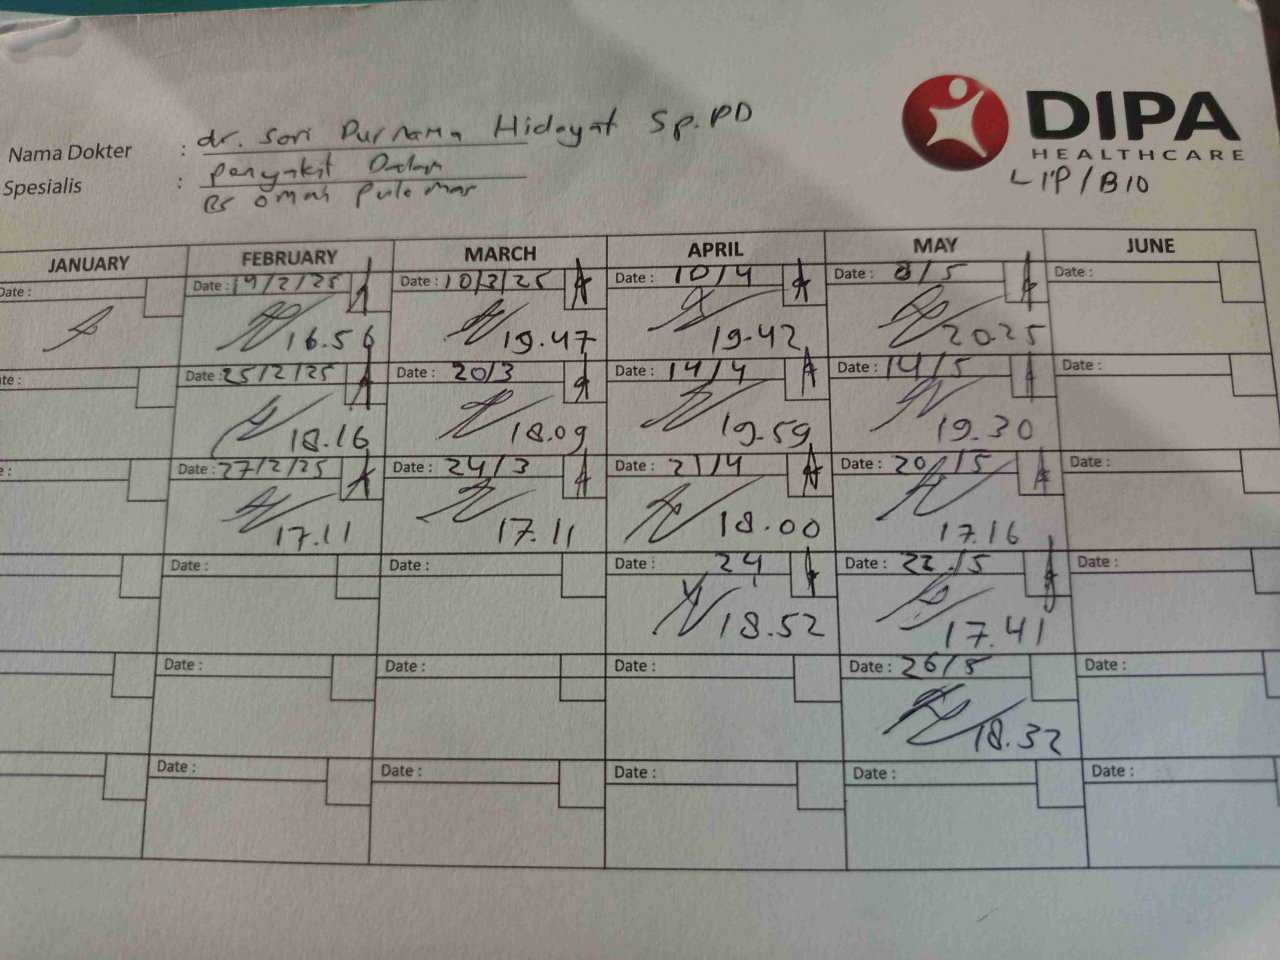 DIPA
HEALTHCARE
LIP/BIO
Nama Dokter : dr. Sori Purnama Hidayat Sp.PD
Spesialis : Penyakit Dalam
RS
JANUARY FEBRUARY MARCH APRIL MAY JUNE
Date : Date : 19/2/25 Date : 10/3/25 Date : 10/4 Date : 8/5 Date :
16.56 19.47 19.42 20.25
Date : 25/2/25 Date : 20/3 Date : 14/4 Date : 14/5 Date :
18.16 18.09 19.59 19.30
Date : 27/2/25 Date : 24/3 Date : 21/4 Date : 20/5 Date :
17.11 17.11 18.00 17.16
Date : Date : Date : 24 Date : 22/5 Date :
18.52 17.41
Date : Date : Date : Date : 26/5 Date :
18.32
Date : Date : Date : Date : Date :